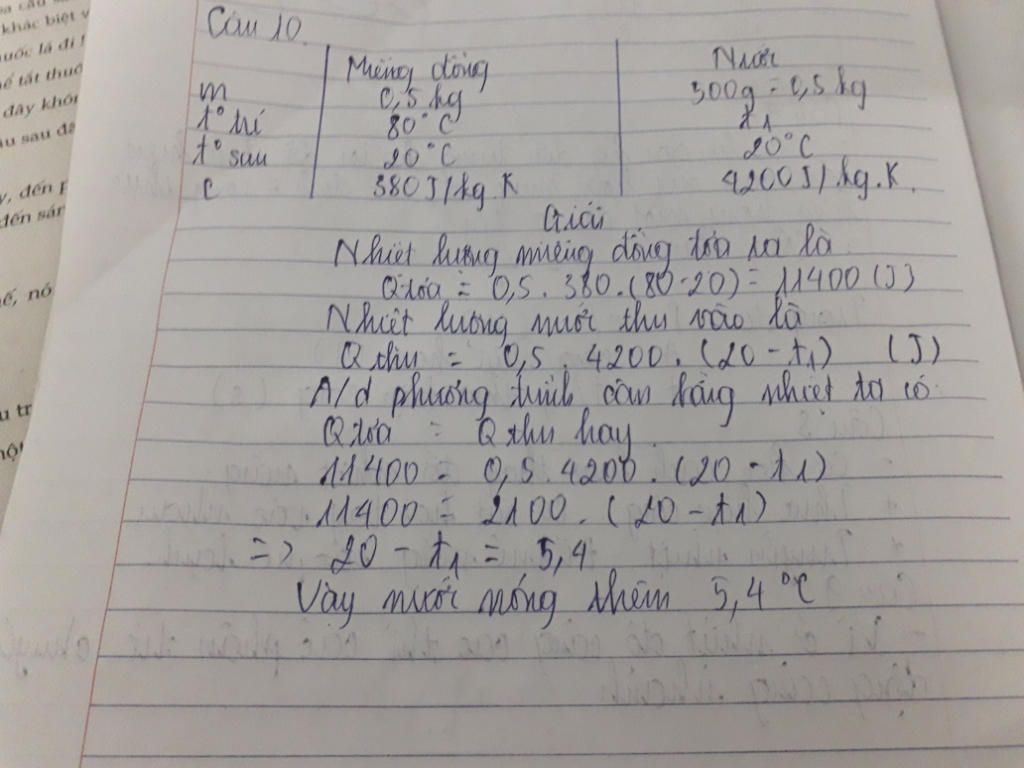 ca cầu
khác biệt v
uốc lá đi
ể tắt thuố
đây khôn
âu sau đâ
y, đến p
đến sán
ế, nó
u tr
một
Câu 10.
Miếng đồng Nước
m 0,5 kg 500g = 0,5 kg
t° trí 80°C t1
t° sau 20°C 20°C
c 380J/kg.K 4200J/kg.K
Giải
Nhiệt lượng miếng đồng tỏa ra là
Q tỏa = 0,5 . 380 . (80-20) = 11400 (J)
Nhiệt lượng nước thu vào là
Q thu = 0,5 . 4200 . (20 - t1) (J)
A/d phương trình cân bằng nhiệt ta có:
Q tỏa = Q thu hay
11400 = 0,5 . 4200 . (20 - t1)
11400 = 2100 . (20 - t1)
=> 20 - t1 = 5,4
Vậy nước nóng thêm 5,4°C